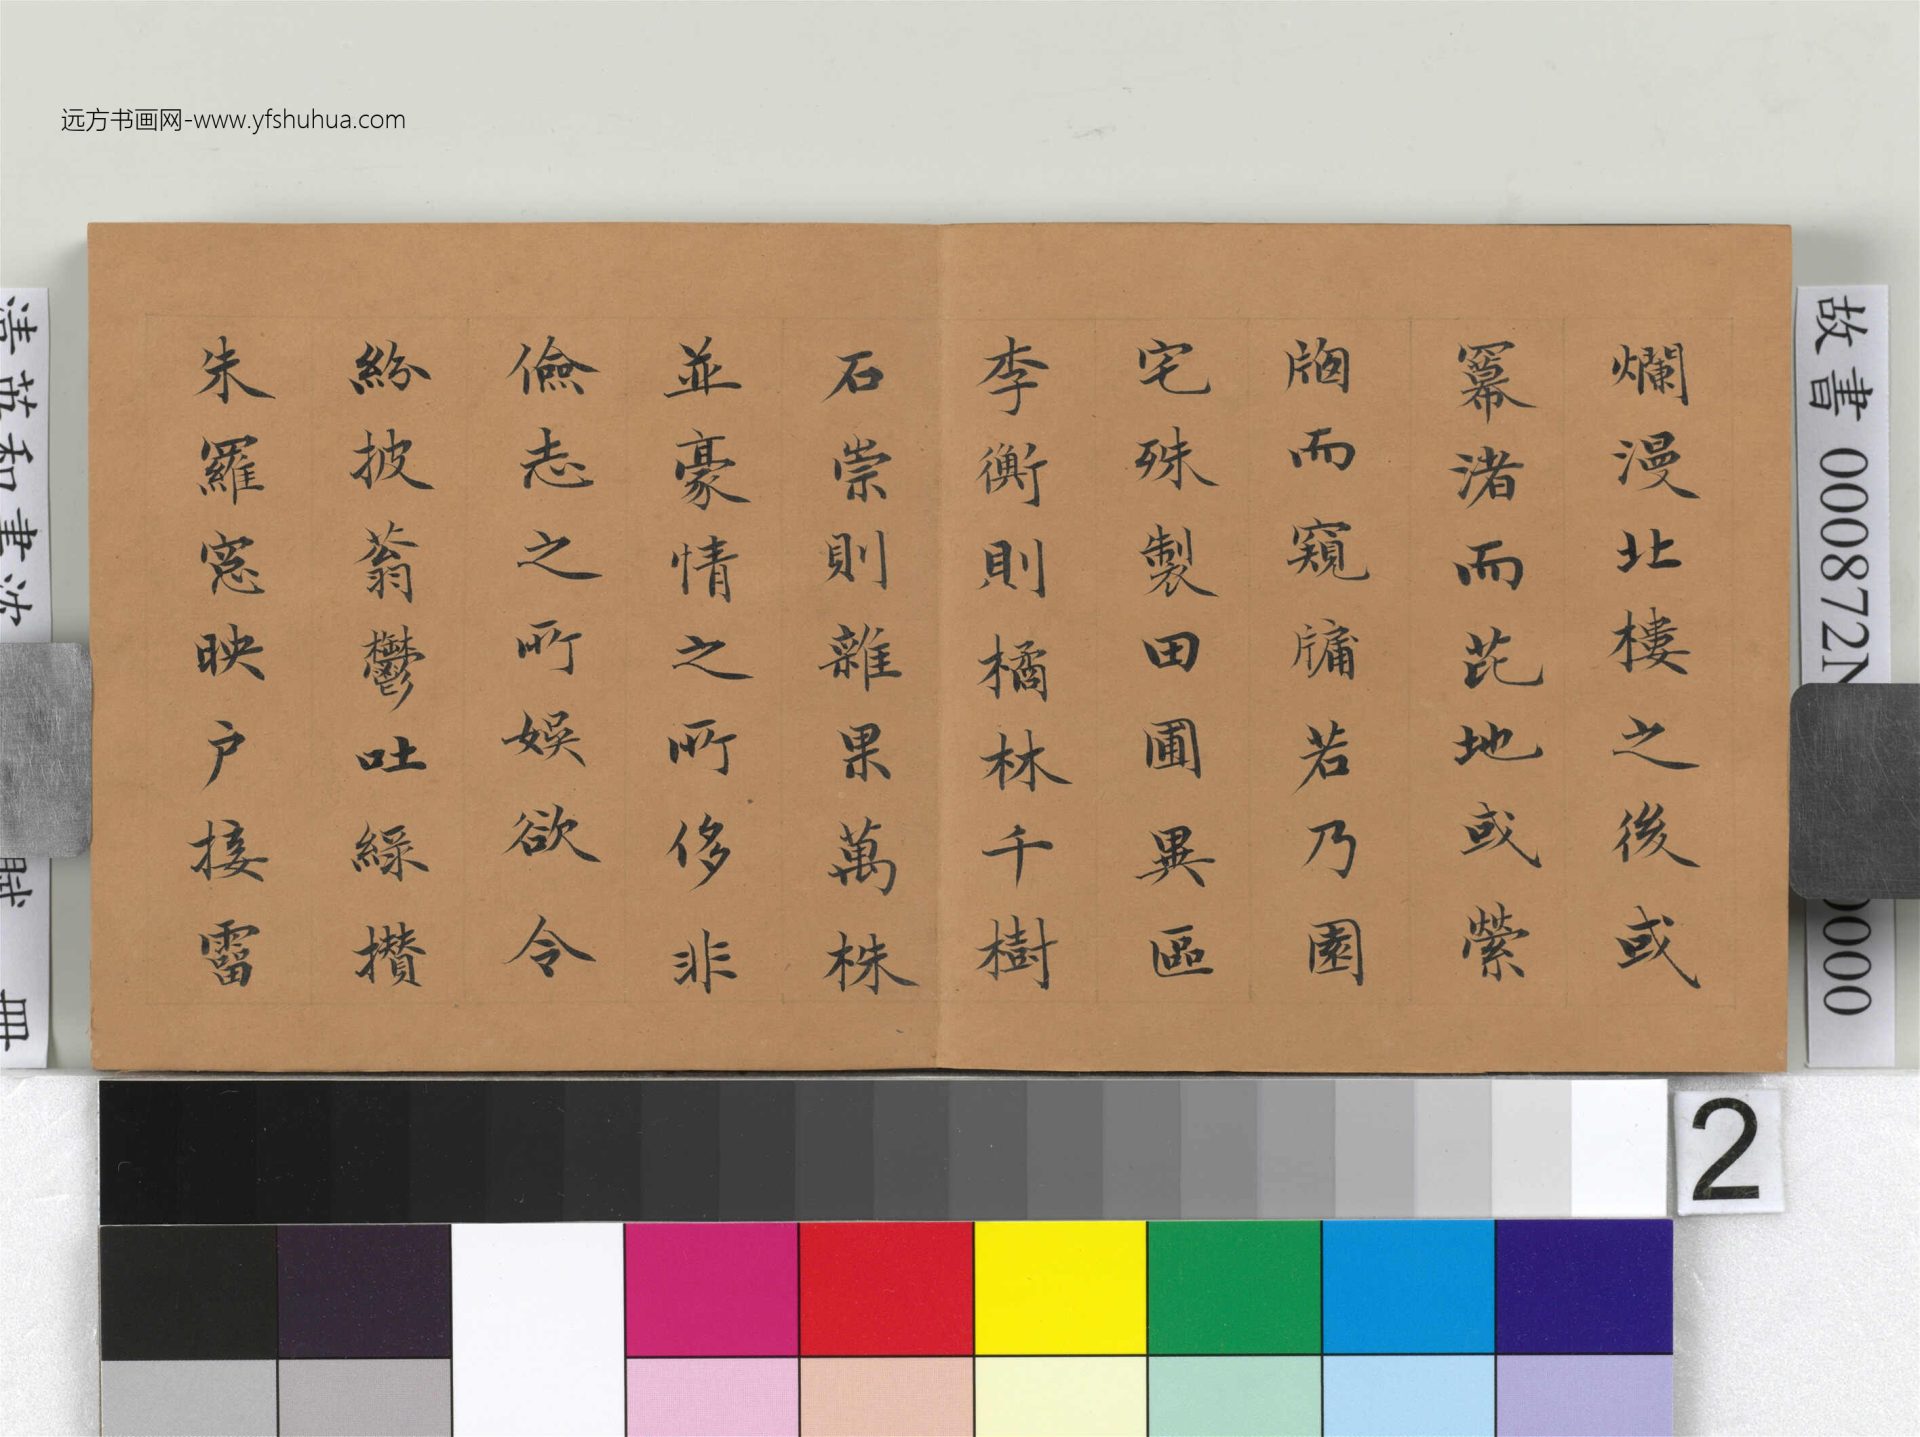 远方书画网-www.yfshuhua.com
爛漫北樓之後或
羃渚而芘地或縈
牕而窺牗若乃園
宅殊製田圃異區
李衡則橘林千樹
石崇則雜果萬株
並豪情之所侈非
儉志之所娛欲令
紛披蓊鬱吐綵攢
朱羅窓映户接霤
故書 000872N
0000
清英和書沈
賦 冊
2